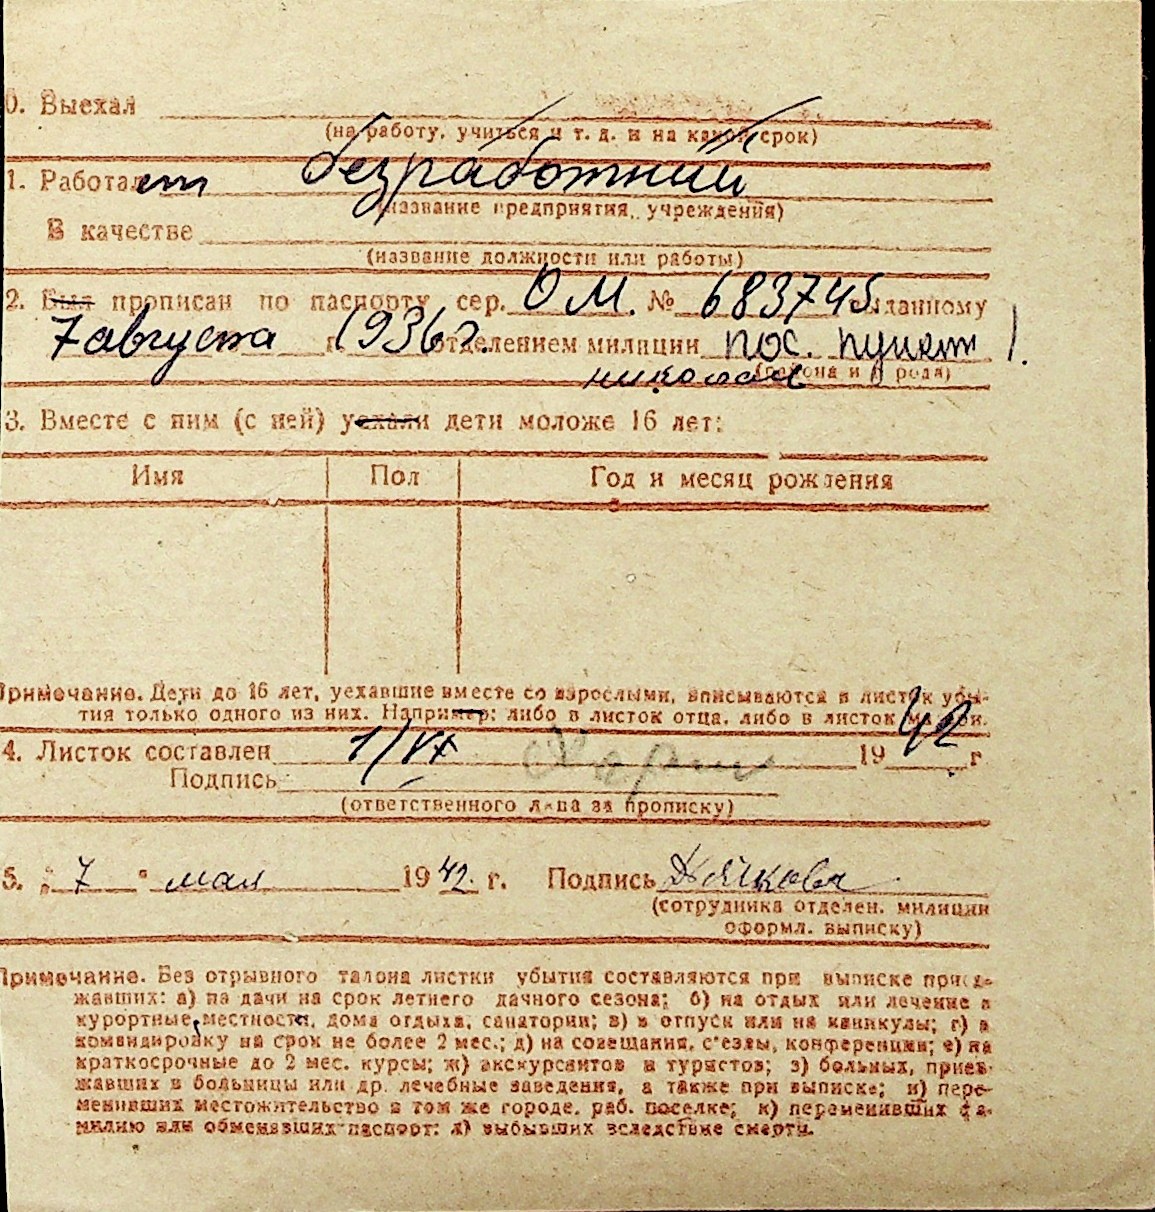 0. Выехал
(на работу, учиться и т. д. и на какой срок)
1. Работает безработный
(название предприятия, учреждения)
В качестве
(название должности или работы)
2. Был прописан по паспорту сер. ОМ. № 683745 выданному
7 августа 1936 г. отделением милиции пос. пункт 1.
(района и города)
3. Вместе с ним (с ней) уехали дети моложе 16 лет:
Имя Пол Год и месяц рождения
Примечание. Дети до 16 лет, уехавшие вместе со взрослыми, вписываются в листок убы-
тия только одного из них. Например: либо в листок отца, либо в листок матери.
4. Листок составлен 1/VI 1942 г
Подпись
(ответственного лица за прописку)
5. "7" мая 1942. г. Подпись
(сотрудника отделен. милиции
оформл. выписку)
Примечание. Без отрывного талона листки убытия составляются при выписке приез-
жавших: а) на дачи на срок летнего дачного сезона; б) на отдых или лечение в
курортные местности, дома отдыха, санатории; в) в отпуск или на каникулы; г) в
командировку на срок не более 2 мес.; д) на совещания, с'езды, конференции; е) на
краткосрочные до 2 мес. курсы; ж) экскурсантов и туристов; з) больных, приез-
жавших в больницы или др. лечебные заведения, а также при выписке; и) пере-
менивших местожительство в том же городе, раб. поселке; к) переменивших фа-
милию или обменявших паспорт; л) выбывших вследствие смерти.